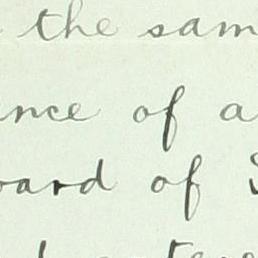 the sam
nce of a
oard of S